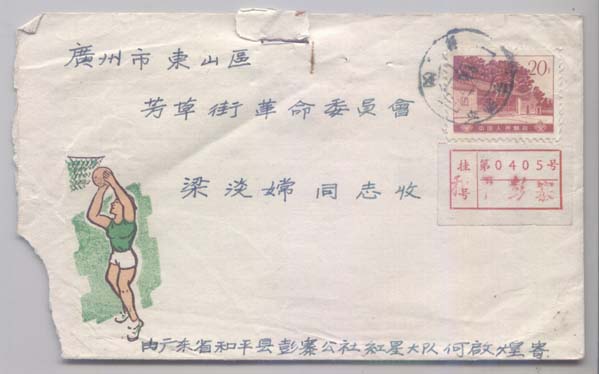 廣州市東山區
芳草街革命委员會
梁淡嫦同志收
由广东省和平县彭寨公社紅星大队何啟煌寄
20分
中国人民邮政
挂号
第0405号
彭寨